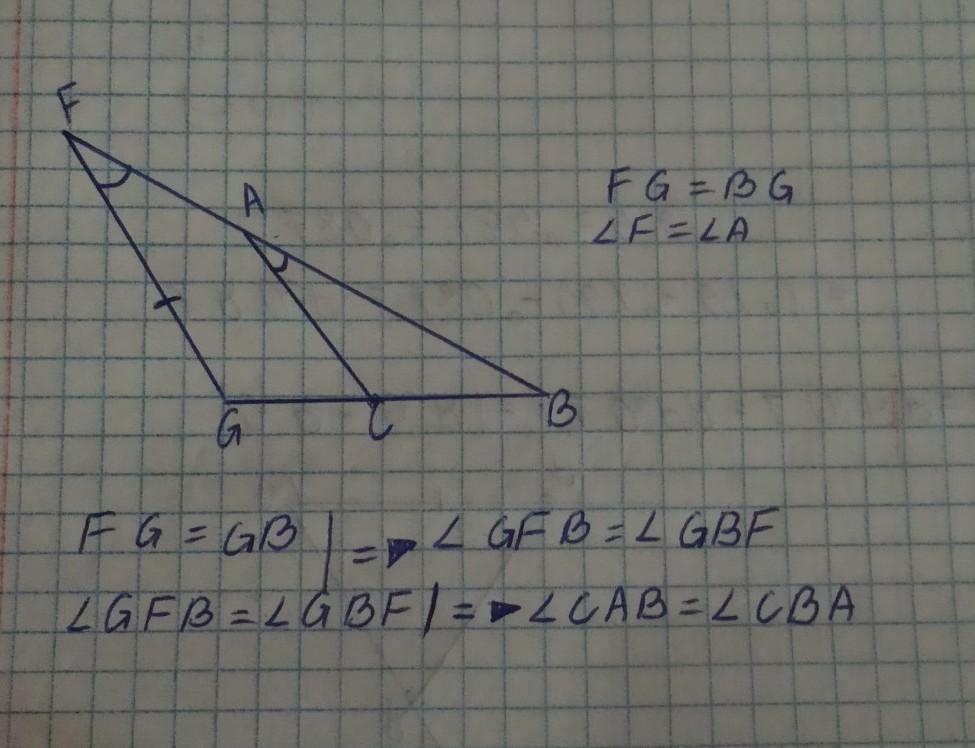 F
A
FG = BG
∠F = ∠A
G
C
B
FG = GB | => ∠GFB = ∠GBF
∠GFB = ∠GBF | => ∠CAB = ∠CBA